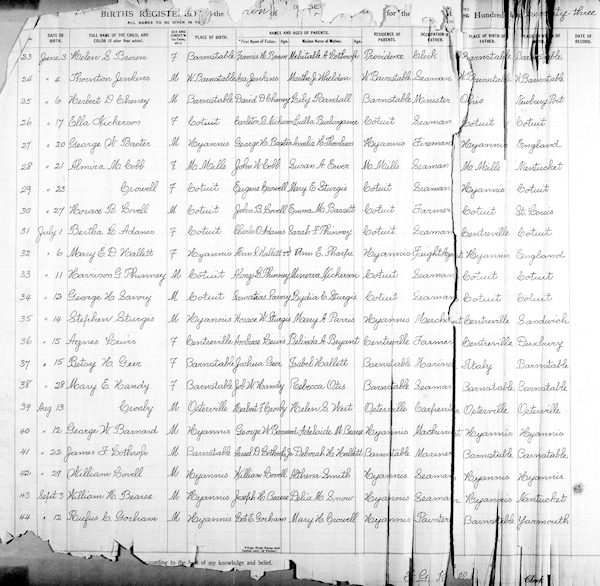 BIRTHS REGISTERED the for the Hundred and Seventy-three
ALL NAMES TO BE GIVEN IN
DATE OF BIRTH. FULL NAME OF THE CHILD, AND COLOR (if other than white). SEX AND PLACE OF BIRTH. NAMES AND AGES OF PARENTS. RESIDENCE OF PARENTS. OCCUPATION OF PLACE OF BIRTH OF FATHER. PLACE OF BIRTH OF DATE OF RECORD.
*First Name of Father. Age. Maiden Name of Mother. Age.
23 June 3 Helen G. Brown F Barnstable Mehitable A. Lothrop Providence Clerk Barnstable
24 " 4 Thornton Jenkins M W. Barnstable Jenkins Martha J. Whelden W. Barnstable Seaman W. Barnstable W. Barnstable
25 " 6 Herbert D. Cheney M Barnstable David D. Cheney Lucy Randall Barnstable Minister Newbury Port
26 " 17 Ella Nickerson F Cotuit Nickerson Cotuit Seaman Cotuit Cotuit
27 " 20 George W. Baxter M Hyannis George H. Baxter Amelia Hyannis Fireman Hyannis England
28 " 21 Almira M. Cobb F M. Mills John W. Cobb Susan A. Ewer M. Mills Seaman M. Mills Nantucket
29 " 23 Crowell F Cotuit Eugene Crowell Mary E. Sturgis Cotuit Seaman Hyannis Cotuit
30 " 27 Horace B. Lovell M Cotuit John B. Lovell Emma M. Bassett Cotuit Farmer Cotuit St. Louis
31 July 1 Bertha L. Adams F Cotuit Charles D. Adams Sarah F. Phinney Cotuit Seaman Centreville Cotuit
32 " 6 Mary E. D. Hallett F Hyannis Hallett Ann E. Sharpe Hyannis Freight Agent Hyannis England
33 " 11 Harrison G. Phinney M Cotuit Alonzo G. Phinney Minerva Nickerson Cotuit Seaman Cotuit Cotuit
34 " 12 George H. Savory M Cotuit Savory Lydia C. Sturgis Cotuit Seaman Cotuit Cotuit
35 " 14 Stephen Sturgis M Hyannis Horace W. Sturgis Mary A. Parris Hyannis Merchant Centreville Sandwich
36 " 15 Agnes Lewis F Centreville Ambrose Lewis Belinda A. Bryant Centreville Farmer Centreville Duxbury
37 " 15 Betsy H. Geer F Barnstable Joshua Geer Isabel Hallett Barnstable Mariner Italy Barnstable
38 " 28 Mary E. Handy F Barnstable Job W. Handy Rebecca Otis Barnstable Seaman Barnstable Barnstable
39 Aug 13 Crosby M Osterville Herbert F. Crosby Helen S. West Osterville Carpenter Osterville Osterville
40 " 12 George W. Barnard M Hyannis George W. Barnard Adelaide M. Bearse Hyannis Machinist Hyannis Hyannis
41 " 23 James F. Lothrop M Barnstable Lothrop Jr Deborah H. Hallett Barnstable Mariner Barnstable Barnstable
42 " 29 William Lovell M Hyannis William Lovell Smith Hyannis Seaman Hyannis Hyannis
43 Sept 3 William H. Bearse M Hyannis Joseph H. Bearse Delia M. Snow Hyannis Seaman Hyannis Nantucket
44 " 12 Rufus C. Gorham M Hyannis Gorham Mary H. Crowell Hyannis Painter Barnstable Yarmouth
According to the best of my knowledge and belief.